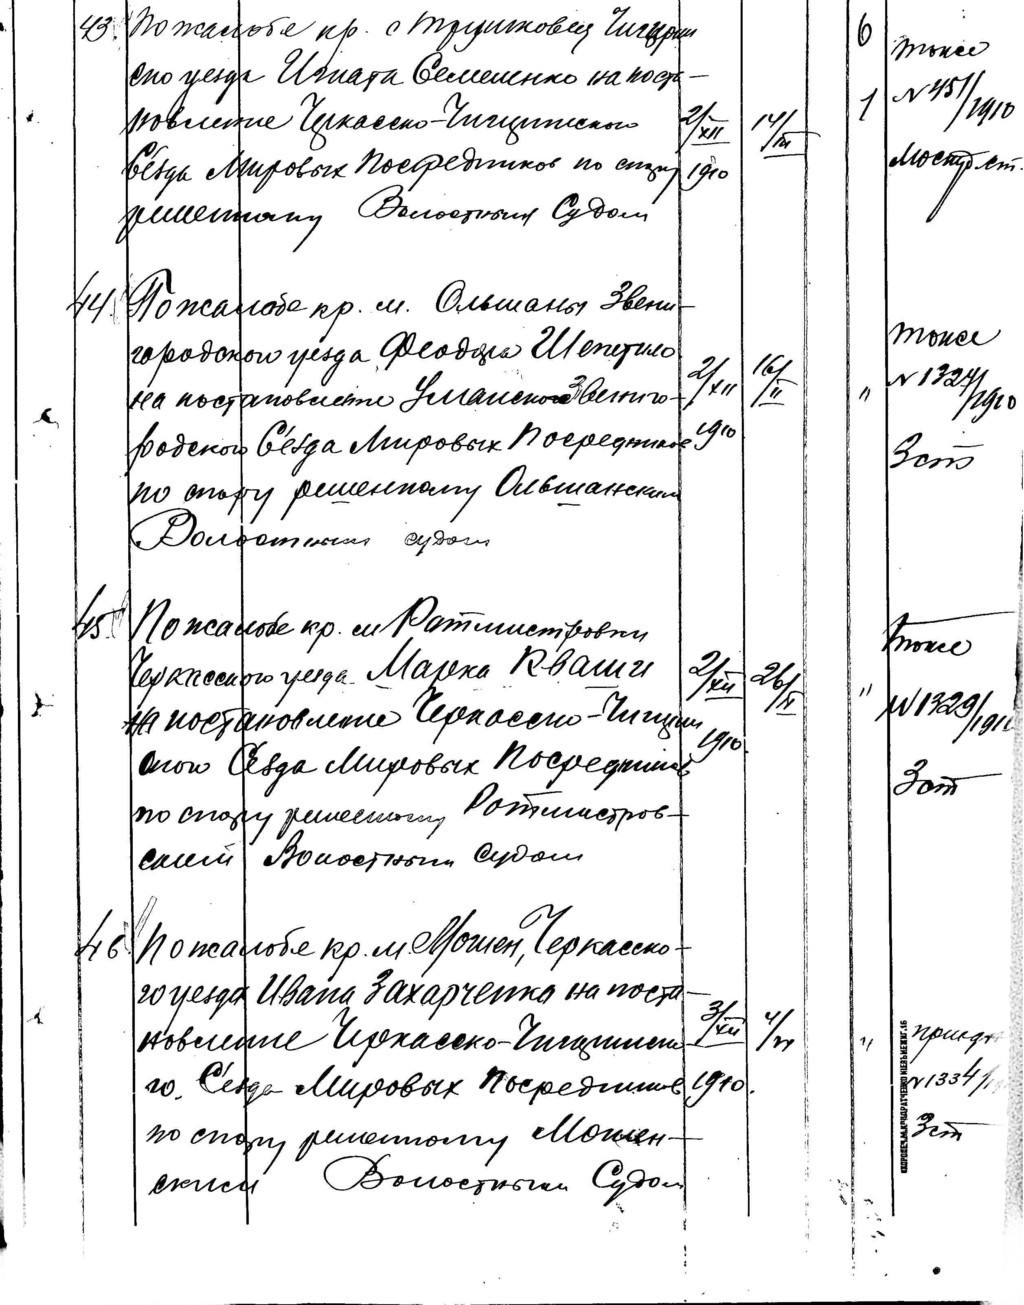 43. По жалобе кр. с Трушковец Чигирин
ского уезда Игната Семененко на поста-
новление Черкасско-Чигиринского 2/XII 14/III 1
Съезда Мировых Посредников по спору 1910
решенному Волостным Судом
6
тоже
№ 451/1910
ст.
44. По жалобе кр. м. Ольшаны Звени-
городского уезда Феодора Шепетило
на постановление Уманско-Звениго- 2/XII 16/II "
родского Съезда Мировых Посредников 1910
по спору решенному Ольшанским
Волостным судом
тоже
№ 1324/1910
3 ст
45. По жалобе кр. м Ротмистровки
Черкасского уезда Марка Кваши 2/XII 26/II "
на постановление Черкасско-Чигирин
ского Съезда Мировых Посредников 1910
по спору решенному Ротмистров-
ским Волостным Судом
тоже
№ 1329/1910
3 ст
46. По жалобе кр. м. Мошен, Черкасско-
го уезда Ивана Захарченко на поста-
новление Черкасско-Чигиринско- 3/XII 4/ "
го Съезда Мировых Посредников 1910.
по спору решенному Мошен-
ским Волостным Судом
№ 1334/
3 ст